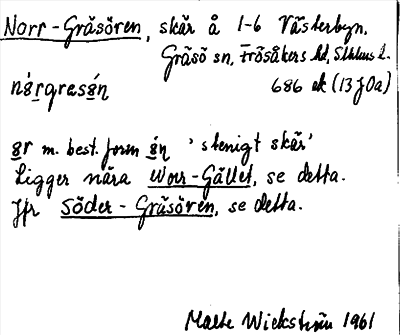 Norr-Gräsören, skär å 1-6 Västerbyn,
Gräsö sn, Frösåkers hd, Sthlms l.
686 ek (13 J 0a)
ör m. best. form ś̱n 'stenigt skär'
Ligger nära Norr-Gället, se detta.
Jfr Söder-Gräsören, se detta.
Malte Wickström 1961